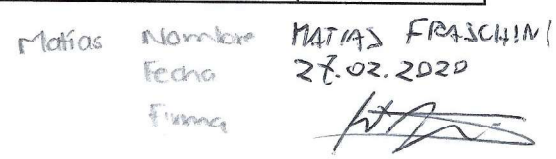 Matías Nombre MATIAS FRASCHINI
Fecha 27.02.2020
Firma